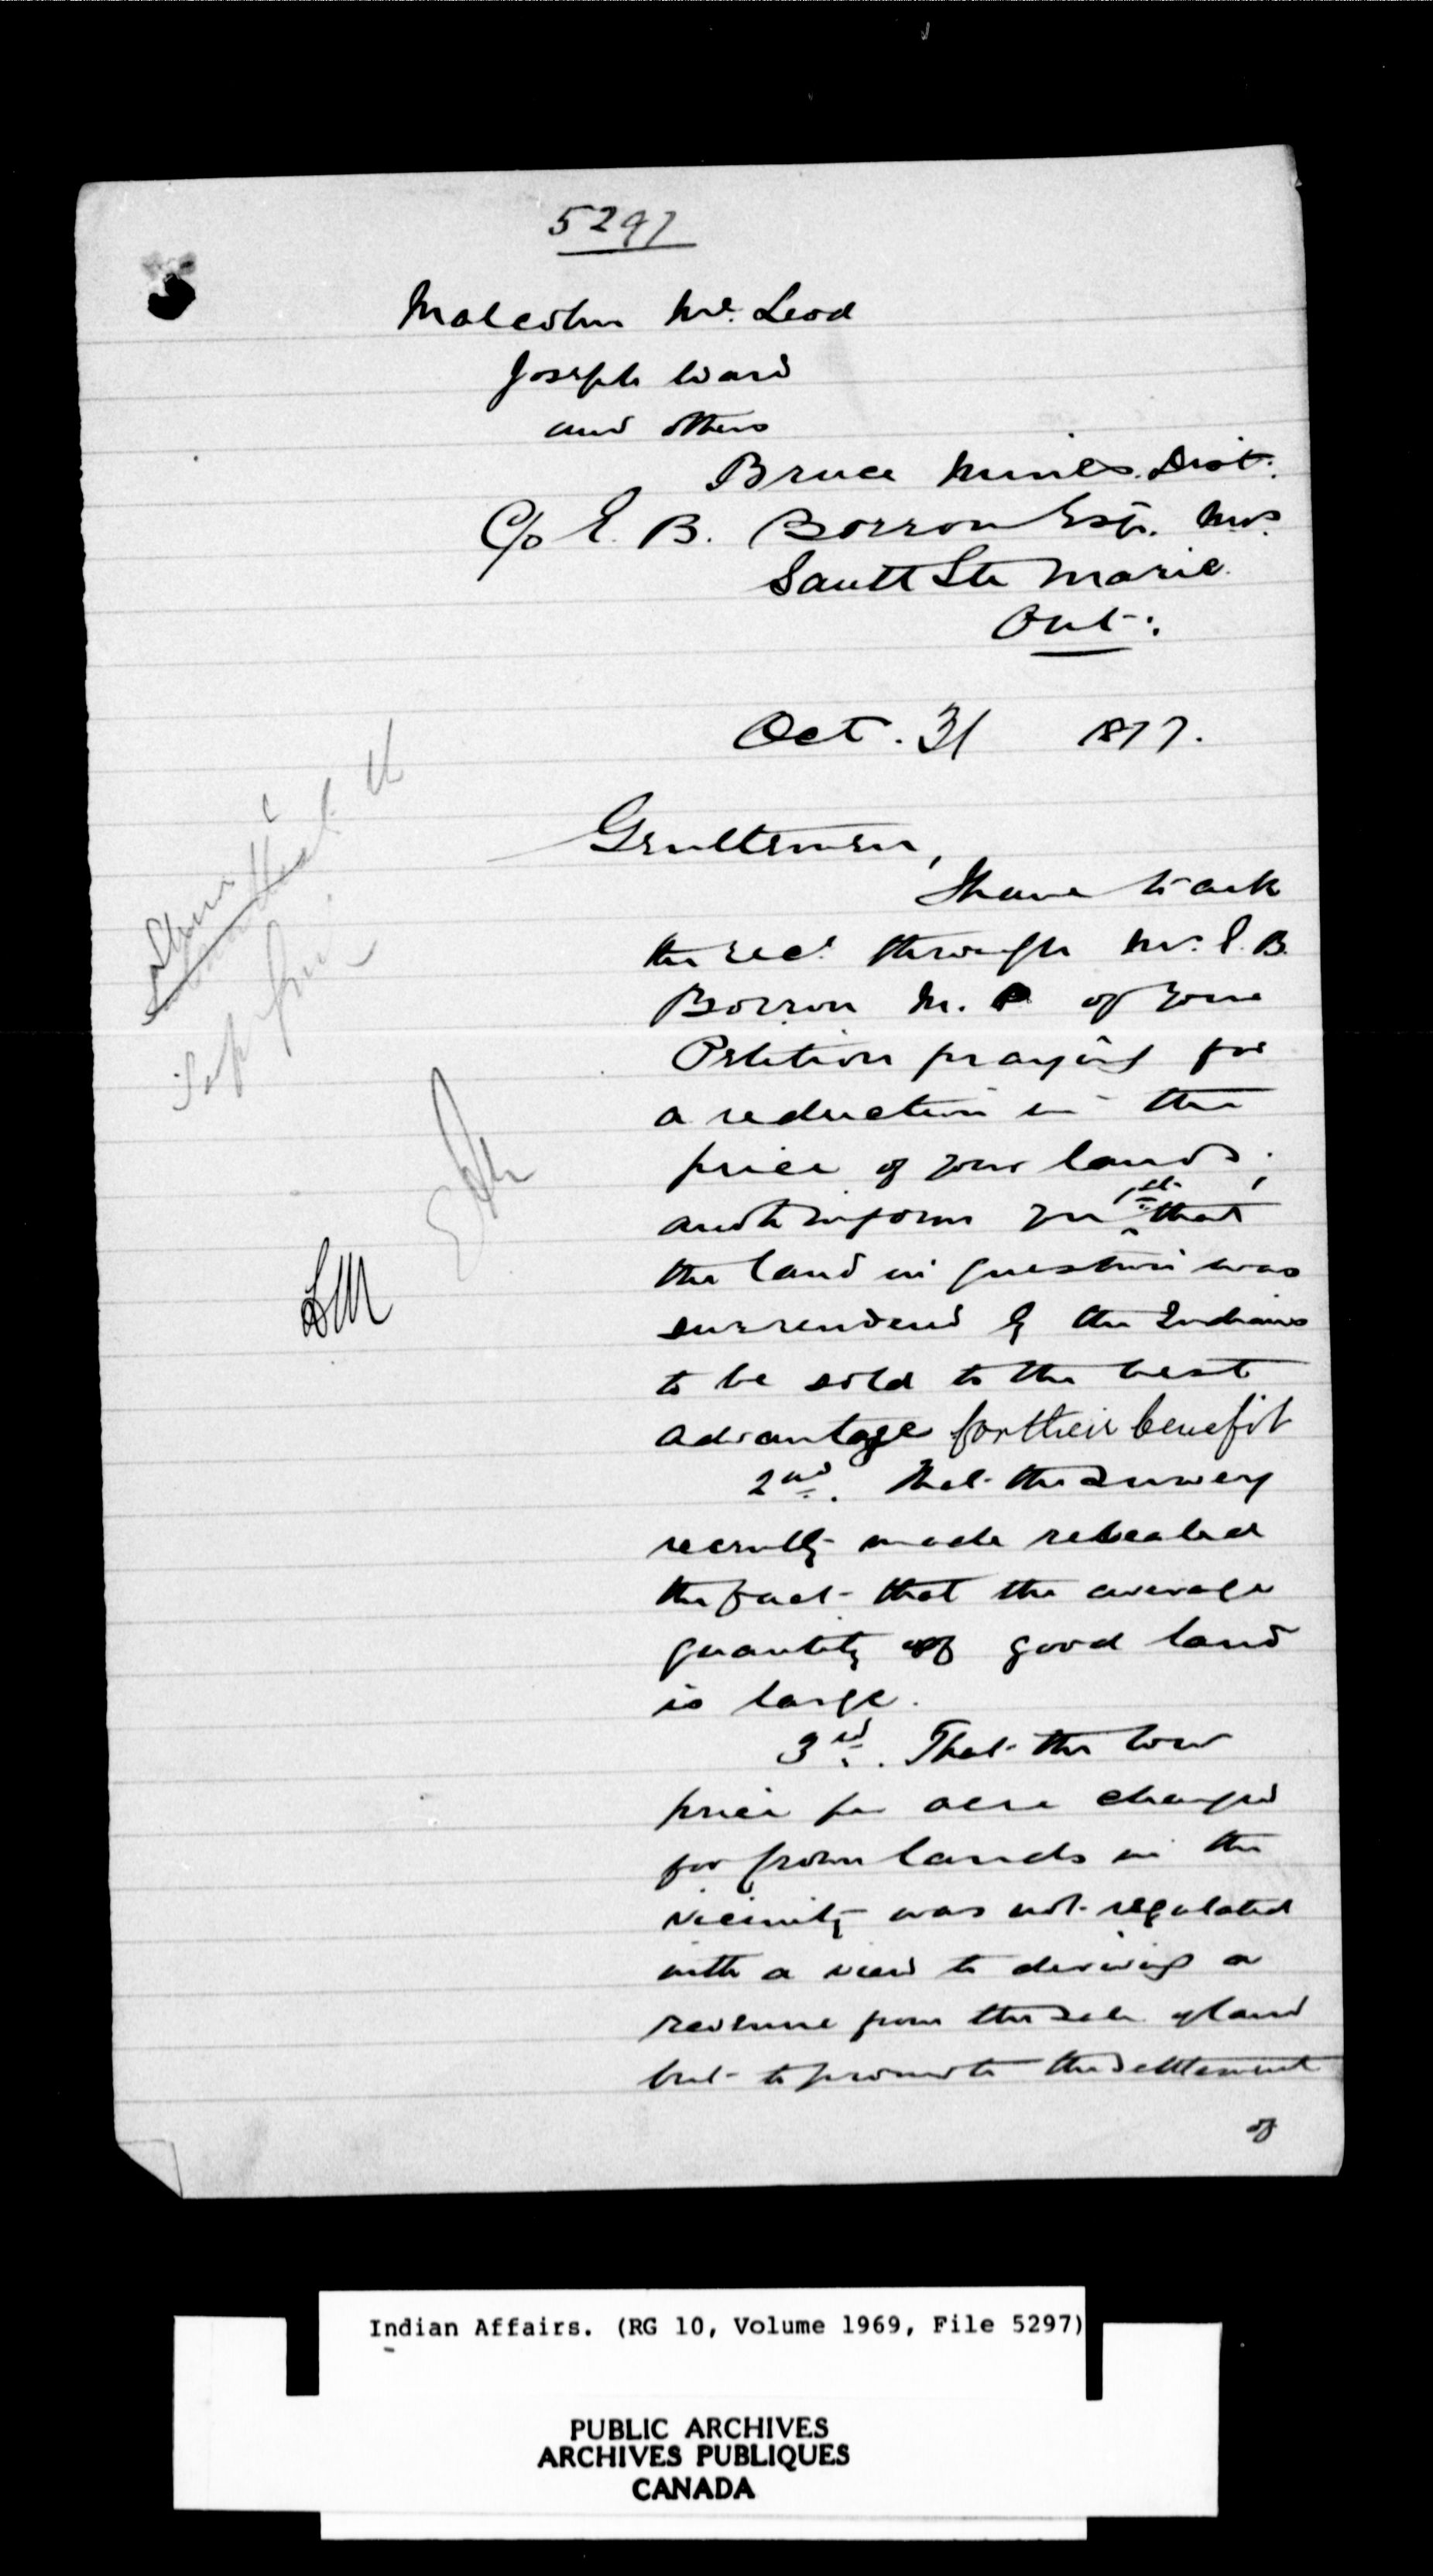 5297
Malcolm Mc. Leod
Joseph Ward
and others
Bruce Mines. Dist.
C/o E. B. Borron Esq. M.P.
Sault Ste Marie.
Ont.
Oct. 31 1877.
Gentlemen,
I have to ack
the rec. through Mr. E. B.
Borron M. P of your
Petition praying for
a reduction in the
price of your lands;
and to inform you 1st that
the land in question was
surrendered by the Indians
to be sold to the best
advantage for their benefit
2nd. That the survey
recently made revealed
the fact that the average
quantity of good land
is large.
3rd. That the low
price per acre charged
for Crown lands in the
vicinity was not regulated
with a view to deriving a
revenue from the sale of land
but to promote the settlement
of
Indian Affairs. (RG 10, Volume 1969, File 5297)
PUBLIC ARCHIVES
ARCHIVES PUBLIQUES
CANADA